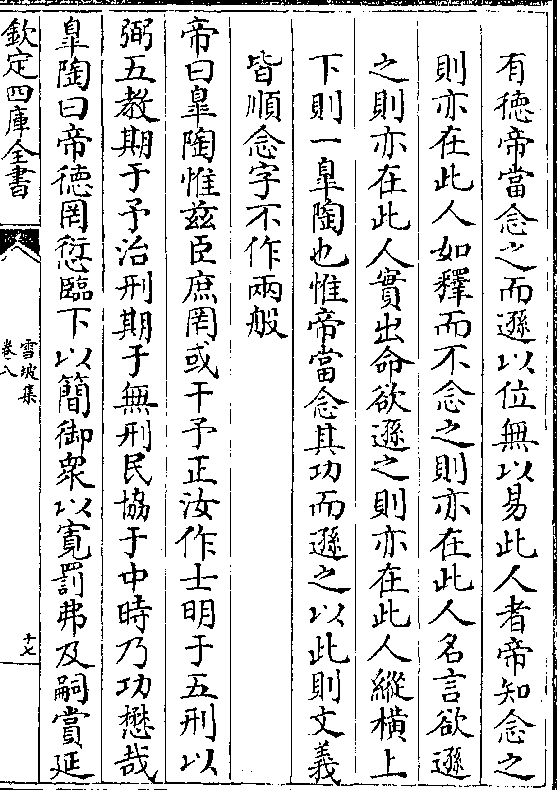 有徳帝當念之而遜以位無以易此人者帝知念之
則亦在此人如釋而不念之則亦在此人名言欲遜
之則亦在此人實出命欲遜之則亦在此人縱横上
下則一臯陶也惟帝當念其功而遜之以此則文義
皆順念字不作兩般
帝曰臯陶惟兹臣庶罔或干予正汝作士明于五刑以
弼五教期于予治刑期于無刑民協于中時乃功懋哉
臯陶曰帝徳罔愆臨下以簡御衆以寛罰弗及嗣賞延
欽定四庫全書
雪坡集
卷八
十七